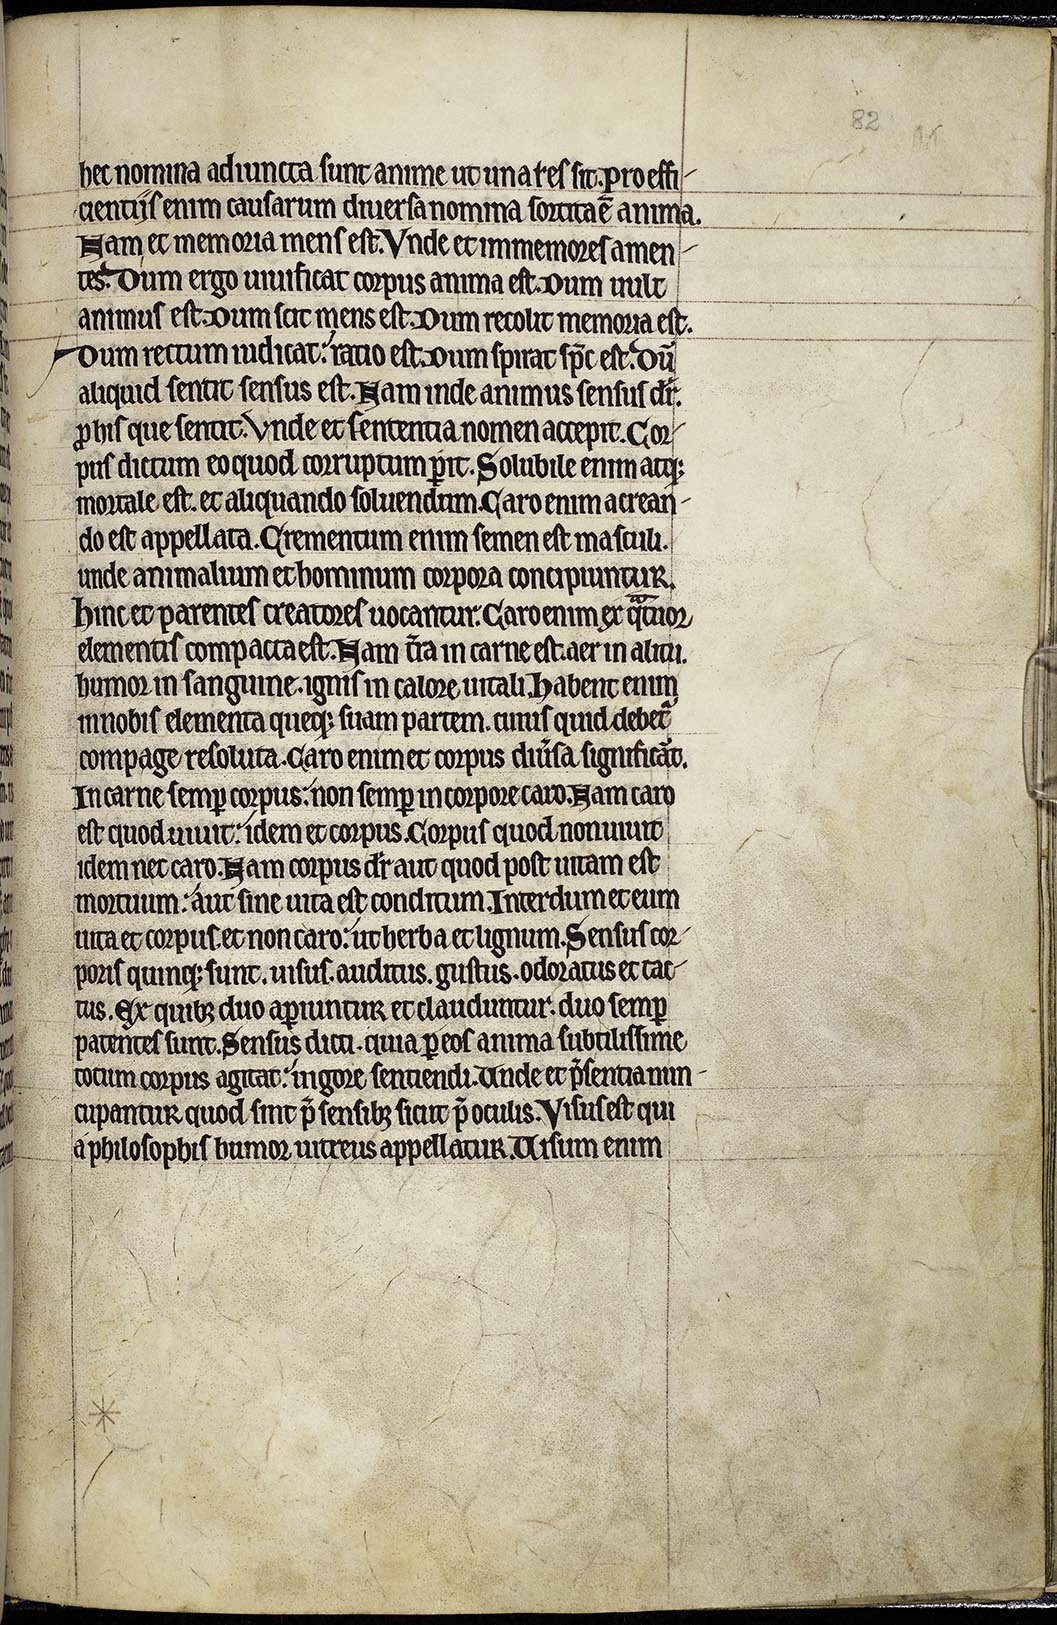 82
hec nomina adiuncta sunt anime ut una res sit. pro effi-
cientiis enim causarum diuersa nomina sortita ē anima.
Nam et memoria mens est. Vnde et immemores amen-
tes. Dum ergo uiuificat corpus anima est. Dum uult
animus est. Dum scit mens est. Dum recolit memoria est.
Dum rectum iudicat: ratio est. Dum spirat sp̄c est. Dū
aliquid sentit sensus est. Nam inde animus sensus dr̄.
ꝓ his que sentit. Vnde et sententia nomen accepit. Cor-
pus dictum eo quod corruptum ꝑit. Solubile enim atq;
mortale est. et aliquando soluendum. Caro enim a crean-
do est appellata. Crementum enim semen est masculi.
unde animalium et hominum corpora concipiuntur.
Hinc et parentes creatores uocantur. Caro enim ex qᵃtuor
elementis compacta est. Nam t̄ra in carne est. aer in alitu.
humor in sanguine. ignis in calore uitali. Habent enim
in nobis elementa queq; suam partem. cuius quid debet᷑
compage resoluta. Caro enim et corpus diu̾sa significāt.
In carne semꝑ corpus: non semꝑ in corpore caro. Nam caro
est quod uiuit: idem et corpus. Corpus quod non uiuit
idem nec caro. Nam corpus dr̄ aut quod post uitam est
mortuum: aut sine uita est conditum. Interdum et cum
uita et corpus. et non caro: ut herba et lignum. Sensus cor-
poris quinq; sunt. uisus. auditus. gustus. odoratus et tac-
tus. Ex quibꝫ duo aꝑiuntur et clauduntur. duo semꝑ
patentes sunt. Sensus dicti. quia ꝑ eos anima subtilissime
totum corpus agitat: in gore sentiendi. Unde et p̄sentia nun-
cupantur quod sint p̄ sensibꝫ sicut p̄ oculis. Visus est qui
a philosophis humor uitreus appellatur. Uisum enim